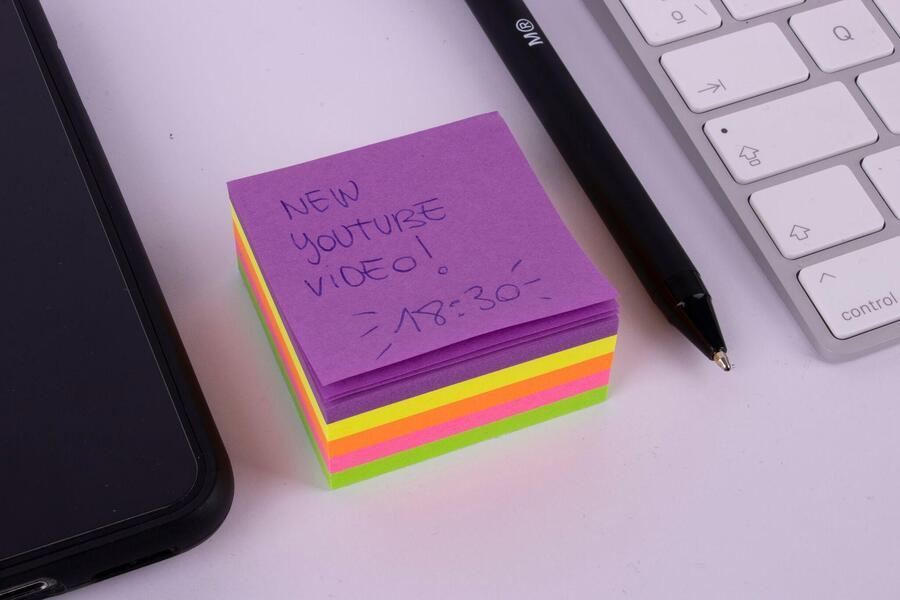 NEW
YOUTUBE
VIDEO!
18:30
M®
º \
Q
control